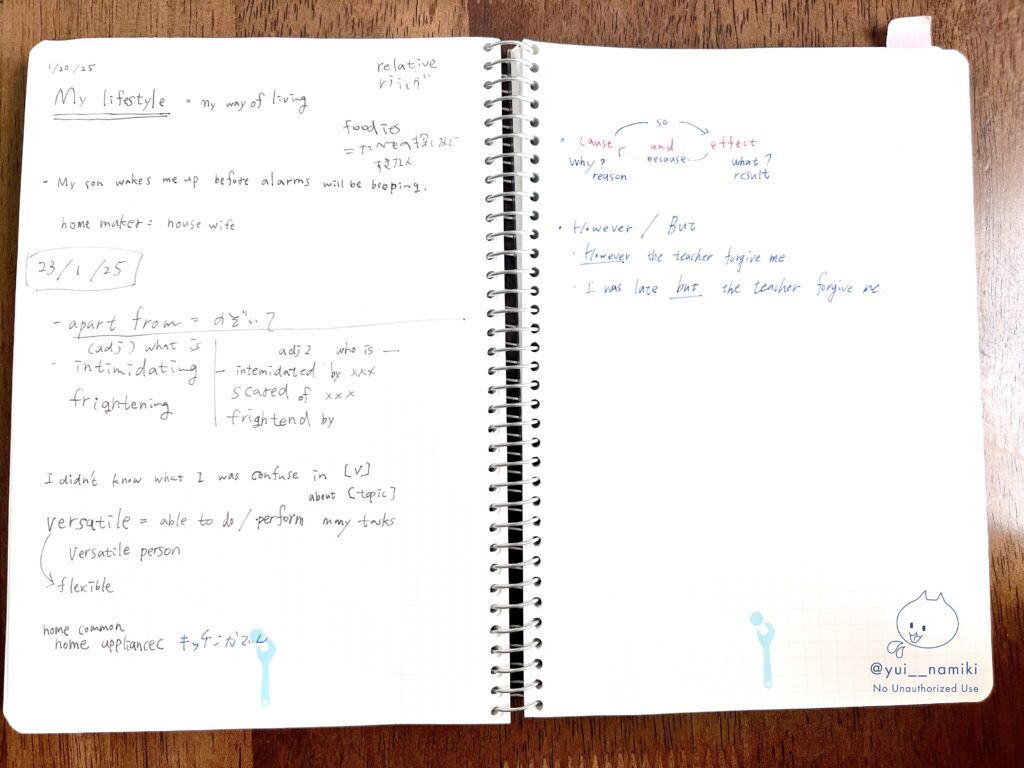 1/20/25
relative
My lifestyle = my way of living
foodies
- My son wakes me up before alarms will be beeping.
home maker: house wife
23/1/25
- apart from = のぞいて
(adj) what is
- intimidating
frightening
adj2 who is —
- intemidated by xxx
scared of xxx
frightend by
I didn't know what I was confuse in [V]
about [topic]
versatile = able to do / perform many tasks
versatile person
flexible
home common
home appliancec キッチンかでん
so
• cause and effect
because
why? what?
reason result
• However / But
• However the teacher forgive me
• I was late but the teacher forgive me.
@yui__namiki
No Unauthorized Use